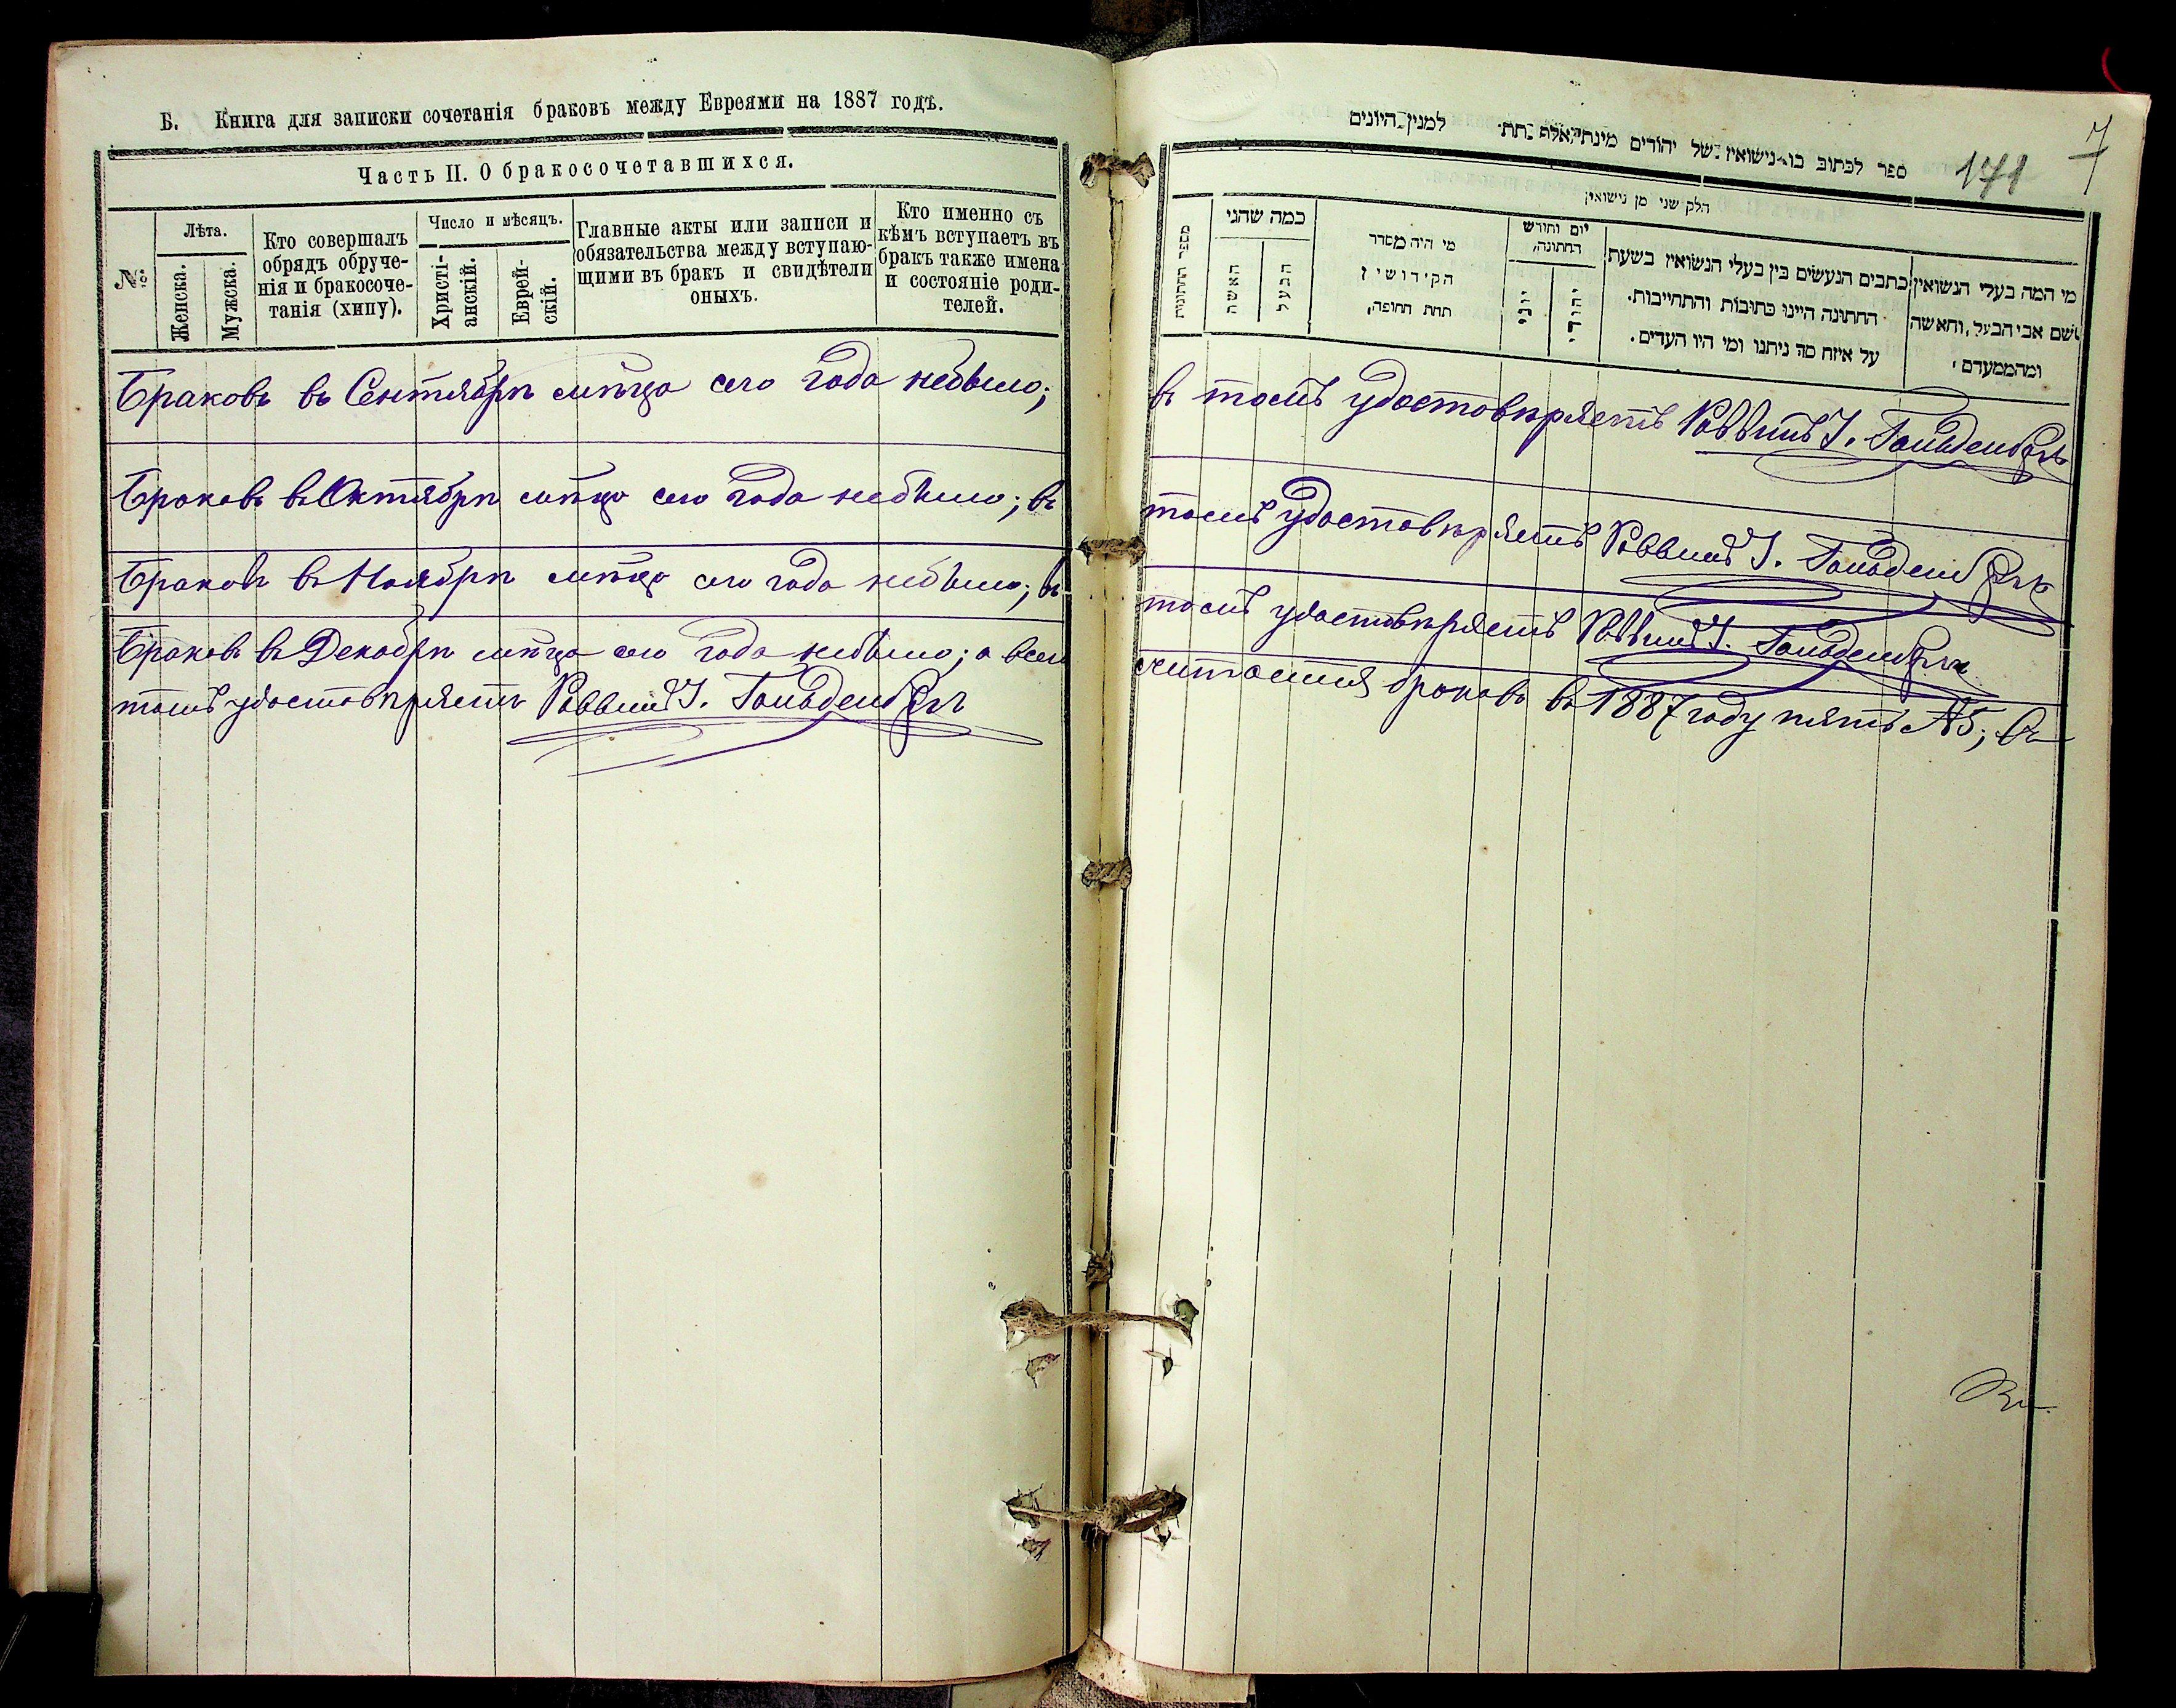 Б. Книга для записки сочетанія браковъ между Евреями на 1887 годъ.
Часть II. О бракосочетавшихся.
№
Лѣта.
Женска.
Мужска.
Кто совершалъ
обрядъ обруче-
нія и бракосоче-
танія (хипу).
Число и мѣсяцъ.
Христі-
анскій.
Еврей-
скій.
Главные акты или записи и
обязательства между вступаю-
щими въ бракъ и свидѣтели
оныхъ.
Кто именно съ
кѣмъ вступаетъ въ
бракъ также имена
и состояніе роди-
телей.
Браковъ въ Сентябрѣ мѣсцѣ сего года небыло;
Браковъ въ Октябрѣ мѣсцѣ сего года небыло; въ
Браковъ въ Ноябрѣ мѣсцѣ сего года небыло; въ
Браковъ въ Декабрѣ мѣсцѣ сего года небыло; а всего
томъ удостовѣряетъ Раввинъ
ספר לכתוב בו נישואין של יהודים למנין היונים
171
7
חלק שני מן נישואין
מספר החתונות
כמה שהגי
האשה
הבעל
מי היה מסדר
הקידושין
תחת החופה,
יום וחודש
החתונה,
יוני
יהודי
כתבים הנעשים בין בעלי הנשואין בשעת
החתונה היינו כתובות והתחייבות.
על איזה סה ניתנו ומי היו העדים.
מי המה בעלי הנשואין
שם אבי הבעל, והאשה
ומהממעדם,
въ томъ удостовѣряетъ Раввинъ
томъ удостовѣряетъ Раввинъ
томъ удостовѣряетъ Раввинъ
считается браковъ въ 1887 году пять №5; въ